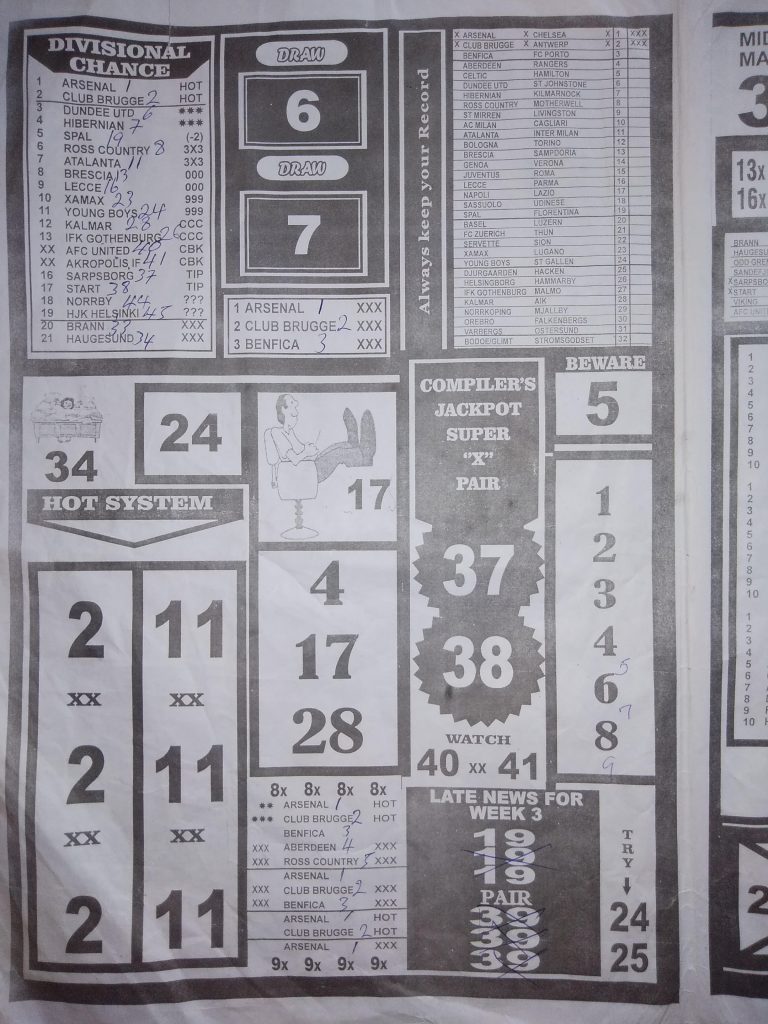 DIVISIONAL
CHANCE
1 ARSENAL 1 HOT
2 CLUB BRUGGE 2 HOT
3 DUNDEE UTD 6 ***
4 HIBERNIAN 7 ***
5 SPAL 19 (-2)
6 ROSS COUNTRY 8 3X3
7 ATALANTA 11 3X3
8 BRESCIA 13 000
9 LECCE 16 000
10 XAMAX 23 999
11 YOUNG BOYS 24 999
12 KALMAR 28 CCC
13 IFK GOTHENBURG 26 CCC
XX AFC UNITED CBK
XX AKROPOLIS IF 41 CBK
16 SARPSBORG 37 TIP
17 START 38 TIP
18 NORRBY 44 ???
19 HJK HELSINKI 45 ???
20 BRANN 33 XXX
21 HAUGESUND 34 XXX
DRAW
6
DRAW
7
1 ARSENAL 1 XXX
2 CLUB BRUGGE 2 XXX
3 BENFICA 3 XXX
Always keep your Record
X ARSENAL CHELSEA X 1 XXX
X CLUB BRUGGE ANTWERP X 2 XXX
BENFICA FC PORTO 3
ABERDEEN RANGERS 4
CELTIC HAMILTON 5
DUNDEE UTD ST JOHNSTONE 6
HIBERNIAN KILMARNOCK 7
ROSS COUNTRY MOTHERWELL 8
ST MIRREN LIVINGSTON 9
AC MILAN CAGLIARI 10
ATALANTA INTER MILAN 11
BOLOGNA TORINO 12
BRESCIA SAMPDORIA 13
GENOA VERONA 14
JUVENTUS ROMA 15
LECCE PARMA 16
NAPOLI LAZIO 17
SASSUOLO UDINESE 18
SPAL FLORENTINA 19
BASEL LUZERN 20
FC ZUERICH THUN 21
SERVETTE SION 22
XAMAX LUGANO 23
YOUNG BOYS ST GALLEN 24
DJURGAARDEN HACKEN 25
HELSINGBORG HAMMARBY 26
IFK GOTHENBURG MALMO 27
KALMAR AIK 28
NORRKOPING MJALLBY 29
OREBRO FALKENBERGS 30
VARBERGS OSTERSUND 31
BODOE/GLIMT STROMSGODSET 32
34
24
17
HOT SYSTEM
2 11
XX XX
2 11
XX XX
2 11
4
17
28
8x 8x 8x 8x
** ARSENAL 1 HOT
*** CLUB BRUGGE 2 HOT
BENFICA 3
XXX ABERDEEN 4 XXX
XXX ROSS COUNTRY 5 XXX
ARSENAL 1
XXX CLUB BRUGGE 2 XXX
XXX BENFICA 3 XXX
ARSENAL 1 HOT
CLUB BRUGGE 2 HOT
ARSENAL 1 XXX
9x 9x 9x 9x
COMPILER'S
JACKPOT
SUPER
"X"
PAIR
37
38
WATCH
40 xx 41
BEWARE
5
1
2
3
4
5
6
7
8
9
LATE NEWS FOR
WEEK 3
19
19
19
PAIR
39
39
39
TRY
24
25
MID
MA
3
13x
16x
BRANN
HAUGESU
ODD GREN
SANDEFJ
XSARPSBO
XSTART
VIKING
AFC UNIT
1
2
3
4
5
6
7
8
9
10
1
2
3
4
5
6
7
8
9
10
1
2
3
4
5
6
7
8
9
10
2